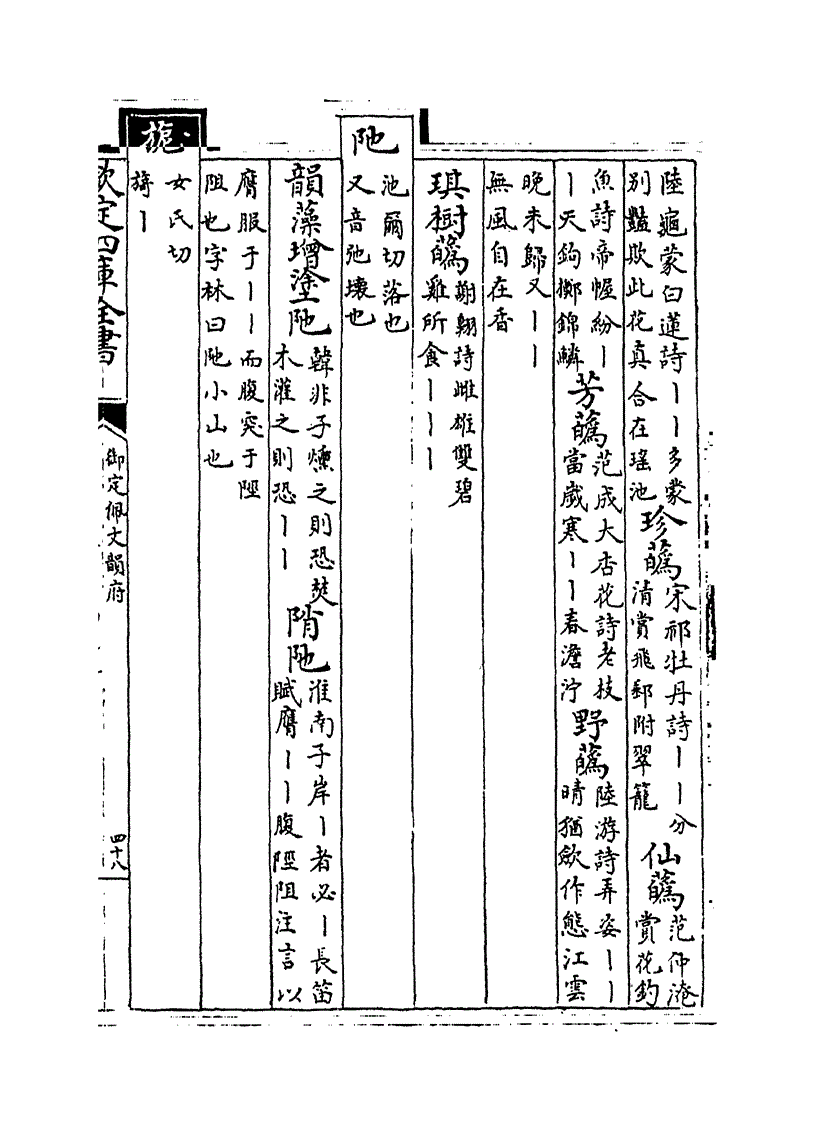 陸龜蒙白蓮詩丨丨多蒙
別豔欺此花真合在瑤池
珍蘤
宋祁牡丹詩丨丨分
清賞飛郵附翠籠
仙蘤
范仲淹
賞花釣
魚詩帝幄紛丨
丨天鉤擲錦鱗
芳蘤
范成大杏花詩老枝
當歲寒丨丨春澹泞
野蘤
陸游詩弄姿丨丨
晴猶斂作態江雲
晚未歸又丨丨
無風自在香
琪樹蘤
謝翱詩雌雄雙碧
雞所食丨丨丨
阤
池爾切落也
又音弛壞也
韻藻增塗阤
韓非子燻之則恐焚
木灌之則恐丨丨
陗阤
淮南子岸丨者必丨長笛
賦膺丨丨腹陘阻注言以
膺服于丨丨而腹突于陘
阻也字林曰阤小山也
旎
女氏切
旖丨
欽定四庫全書
御定佩文韻府
四十八